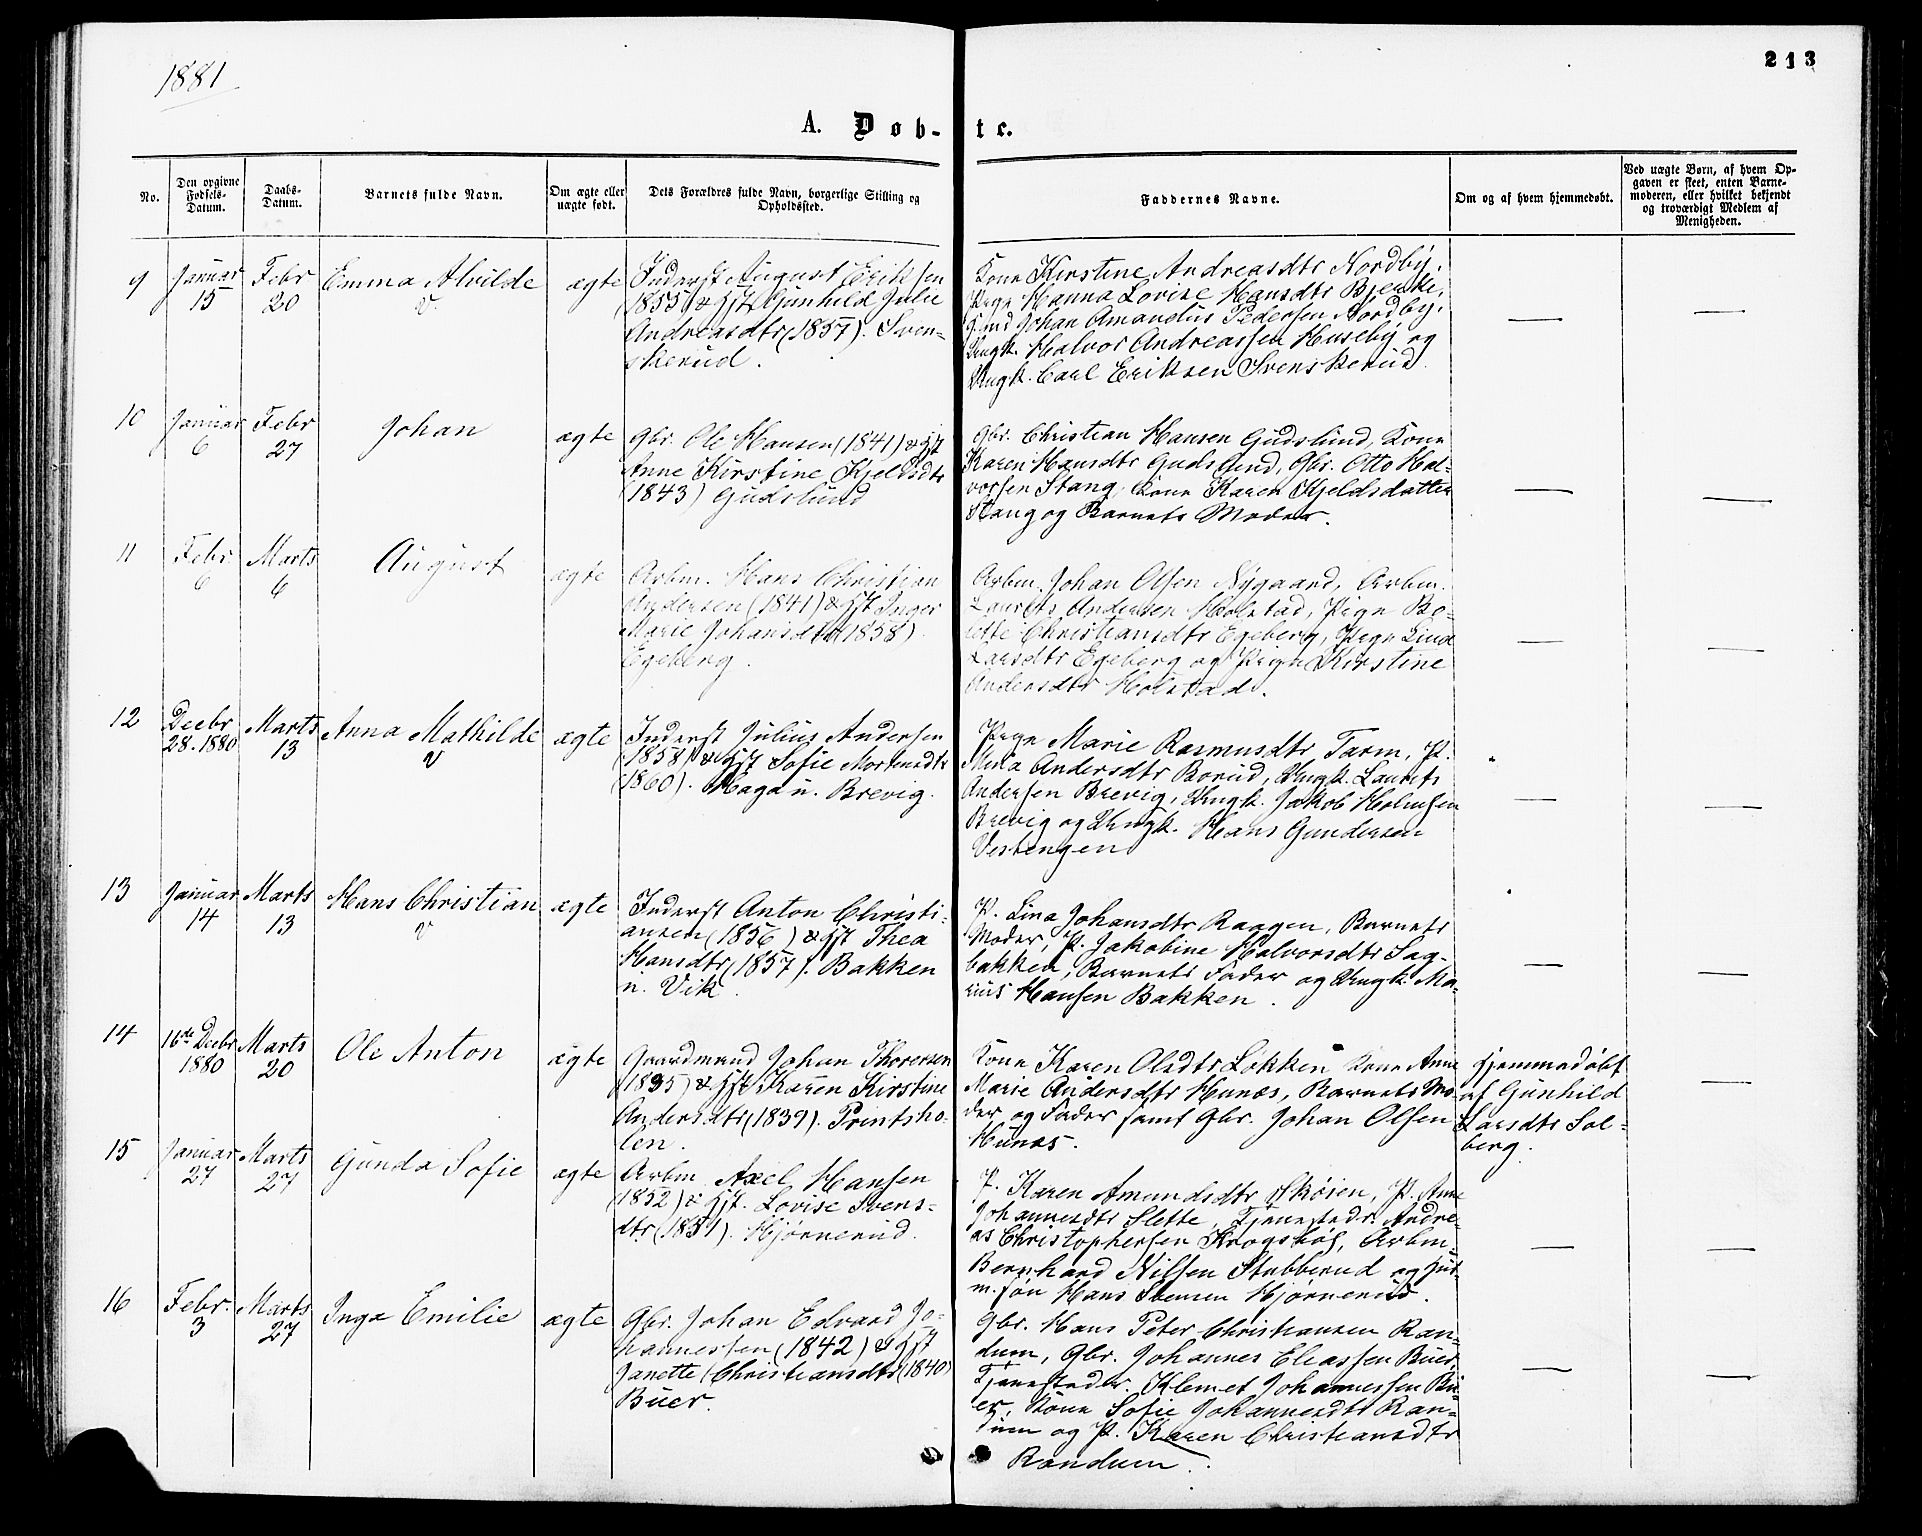 1881
213
A. Døb-
te.
No.
Den opgivne Fødsels-Datum.
Daabs-Datum.
Barnets fulde Navn.
Om ægte eller uægte født.
Dets Forældres fulde Navn, borgerlige Stilling og Opholdssted.
Faddernes Navne.
Om og af hvem hjemmedøbt.
Ved uægte Børn, af hvem Op-
gaven er skeet, enten Barne-
moderen, eller hvilket bekjendt
og troværdigt Medlem af
Menigheden.
9
Januar
15
Febr
20
Emma Alvilde
v.
ægte
Inderst August Eriksen
(1855) & Hst Gunhild Julie
Andreasdtr (1857). Sven-
skerud.
Kone Kirstine Andreasdtr Nordby,
Pige Hanna Lovise Hansdtr Bjerke,
Johan Amandus Pedersen Nordby,
Ungk. Halvor Andreassen Huseby og
Ungk. Carl Eriksen Svenskerud.
—
—
10
Januar
6
Febr
27
Johan
ægte
Gbr. Ole Hansen (1841) & Hst
Anne Kirstine Kjeldsdtr
(1843) Gudslund
Gbr. Christian Hansen Gudslund, Kone
Karen Hansdtr Gudslund, Gbr. Otto Hal-
vorsen Stang, Kone Karen Kjeldsdatter
Stang og Barnets Moder.
—
—
11
Febr.
6
Marts
6
August
ægte
Arbm. Hans Christian
Andersen (1841) & Hst Inger
Marie Johansdtr (1858)
Egeberg.
Arbm. Johan Olsen Nygaard, Arbm.
Laurits Andersen Holstad, Pige Bo-
lette Christiansdtr Egeberg, Pige Lina
Larsdtr Egeberg og Pige Kirstine
Andersdtr Holstad.
—
—
12
Decbr
28. 1880
Marts
13
Anna Mathilde
v
ægte
Inderst Julius Andersen
(1858) & Hst Sofie Mortensdtr
(1860). Haga u. Brevig.
Pige Marie Rasmusdtr Tarm, P.
Mina Andersdtr Borud, Ungk. Laurits
Andersen Brevig, Ungk. Jakob Holmsen
Brevig og Ungk. Hans Gundersen
Vestengen
—
—
13
Januar
14
Marts
13
Hans Christian
v
ægte
Inderst Anton Christi-
ansen (1856) & Hst Thea
Hansdtr (1857). Bakken
u. Vik.
P. Lina Johansdtr Raagen, Barnets
Moder, P. Jakobine Halvorsdtr Sag-
bakken, Barnets Fader og Ungk. Ma-
rius Hansen Bakken.
—
—
14
16de Decbr
1880
Marts
20
Ole Anton
ægte
Gaardmand Johan Thoresen
(1835) & Hst Karen Kirstine
Andersdtr (1839). Printsho-
len.
Kone Karen Olsdtr Løkken Kone Anne
Marie Andersdtr Hunæs, Barnets Mo-
der og Fader samt Gbr. Johan Olsen
Hunæs.
Hjemmedøbt
af Gunhild
Larsdtr Sol-
berg.
—
15
Januar
27
Marts
27
Gunda Sofie
ægte
Arbm Axel Hansen
(1852) & Hst. Lovise Svens-
dtr (1851). Hjørnerud.
P. Karen Amundsdtr Skøien, P. Anne
Johannesdtr Slette, Tjenestedr. Andre-
as Christophersen Krogsbøl, Arbm.
Bernhard Nilsen Stubberud og Hus-
m.søn Hans Svensen Hjørnerud.
—
—
16
Febr.
3
Marts
27
Inga Emilie
ægte
Gbr. Johan Edvard Jo-
hannessen (1842) & Hst
Janette Christiansdtr (1840)
Buer.
Gbr. Hans Peter Christiansen Ran-
dum, Gbr. Johannes Eliassen Buer,
Tjenestedr. Klemet Johannessen Bu-
er, Kone Sofie Johannesdtr Ran-
dum og P. Karen Christiansdtr
Randum.
—
—